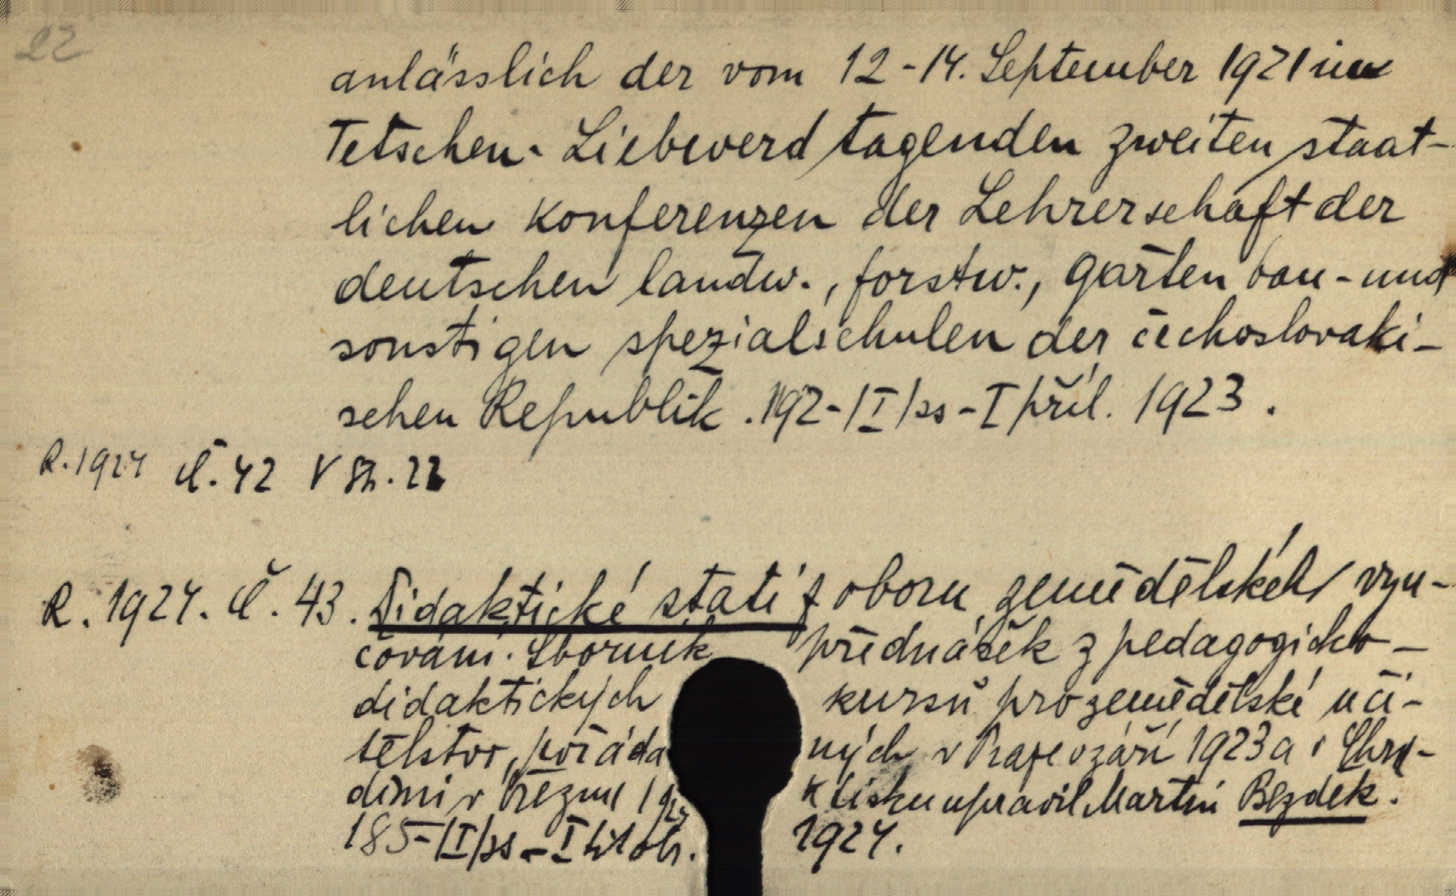 22
anlässlich der vom 12-14. September 1921 in
Tetschen-Liebwerd tagenden zweiten staat-
lichen Konferenzen der Lehrerschaft der
deutschen landw., forstw., garten bau- und
sonstigen spezialschulen der čechoslovaki-
schen Republik. 192-/I/ss-I příl. 1923.
R.1924 č. 42 V
R. 1924. č. 43. Didaktické stati z oboru zemědělskéh vyu-
čování. Sborník přednášek z pedagogicko-
didaktických kursů pro zemědělské uči-
telstvo, pořádaných v Praze v září 1923 a v Chru-
dimi v březnu 192 K tisku upravil Martin Bezděk.
185-/I/ss-I 1924.